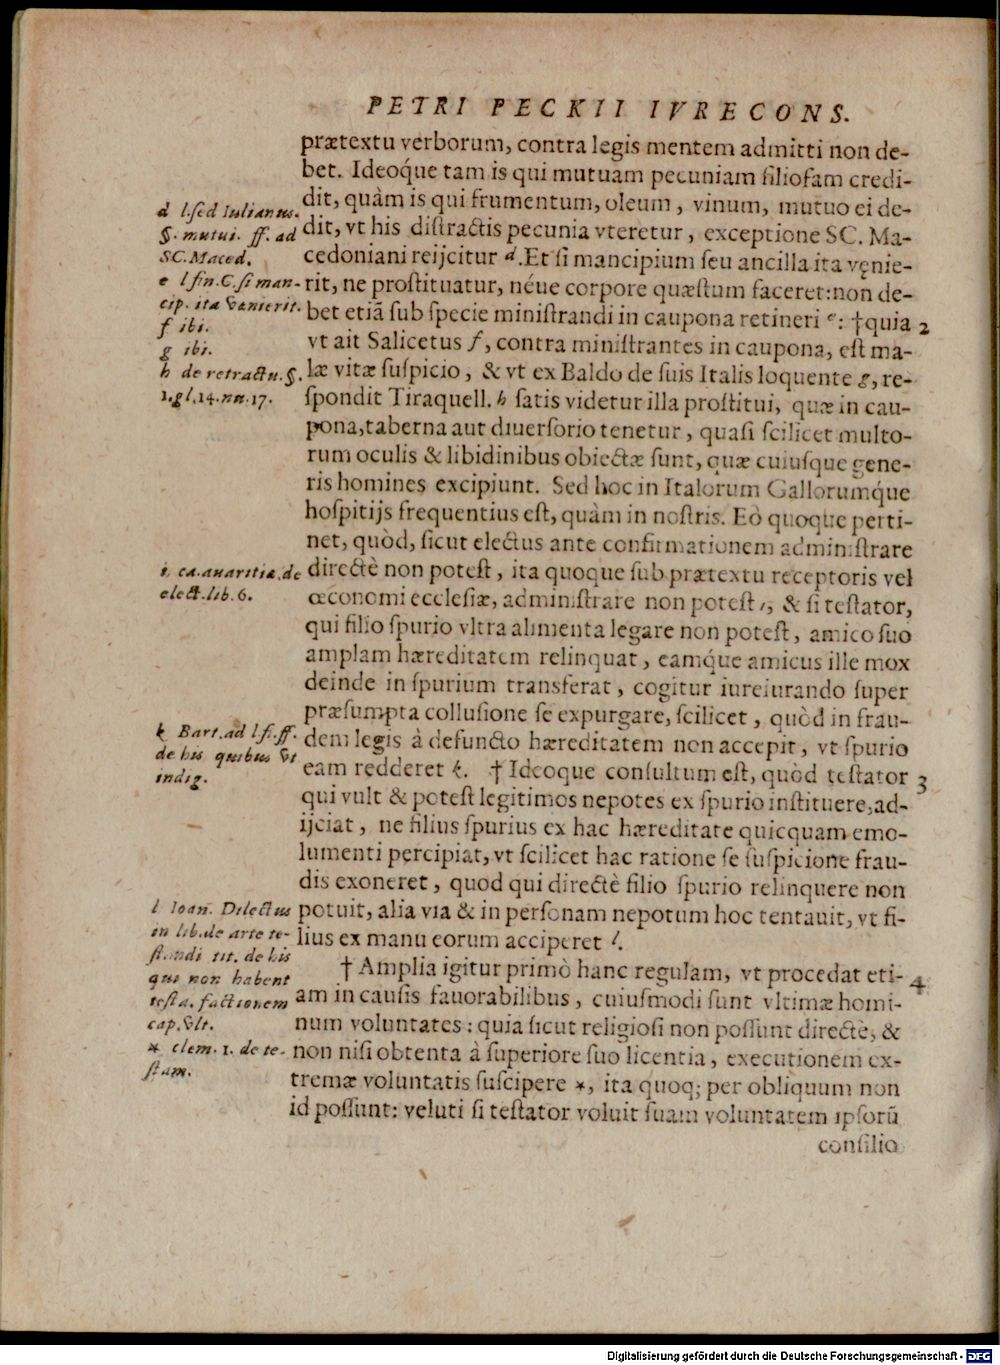 PETRI PECKII IVRECONS.
prætextu verborum, contra legis mentem admitti non de-
bet. Ideóque tam is qui mutuam pecuniam filiofam credi-
dit, quàm is qui frumentum, oleum, vinum, mutuo ei de-
dit, vt his distractis pecunia vteretur, exceptione SC. Ma-
cedoniani reijcitur d. Et si mancipium seu ancilla ita venie-
rit, ne prostituatur, néue corpore quæstum faceret: non de-
bet etiã sub specie ministrandi in caupona retineri e: †quia 2
vt ait Salicetus f, contra ministrantes in caupona, est ma-
læ vitæ suspicio, & vt ex Baldo de suis Italis loquente g, re-
spondit Tiraquell. h satis videtur illa prostitui, quæ in cau-
pona, taberna aut diuersorio tenetur, quasi scilicet multo-
rum oculis & libidinibus obiectæ sunt, quæ cuiusque gene-
ris homines excipiunt. Sed hoc in Italorum Gallorumq́ue
hospitijs frequentius est, quàm in nostris. Eò quoque perti-
net, quòd, sicut electus ante confirmationem administrare
directè non potest, ita quoque sub prætextu receptoris vel
œconomi ecclesiæ, administrare non potest i, & si testator,
qui filio spurio vltra alimenta legare non potest, amico suo
amplam hæreditatem relinquat, eamq́ue amicus ille mox
deinde in spurium transferat, cogitur iureiurando super
præsumpta collusione se expurgare, scilicet, quòd in frau-
dem legis à defuncto hæreditatem non accepit, vt spurio
eam redderet k. † Ideoque consultum est, quòd testator 3
qui vult & potest legitimos nepotes ex spurio instituere, ad-
ijciat, ne filius spurius ex hac hæreditate quicquam emo-
lumenti percipiat, vt scilicet hac ratione se suspicione frau-
dis exoneret, quod qui directè filio spurio relinquere non
potuit, alia via & in personam nepotum hoc tentauit, vt fi-
lius ex manu eorum acciperet l.
† Amplia igitur primò hanc regulam, vt procedat eti- 4
am in causis fauorabilibus, cuiusmodi sunt vltimæ homi-
num voluntates: quia sicut religiosi non possunt directè, &
non nisi obtenta à superiore suo licentia, executionem ex-
tremæ voluntatis suscipere *, ita quoq; per obliquum non
id possunt: veluti si testator voluit suam voluntatem ipsorũ
consilio
d l. sed Iulianus.
§. mutui. ff. ad
SC. Maced.
e l. fin. C. si man-
cip. ita vænierit.
f ibi.
g ibi.
h de retractu. §.
1. gl. 14. nu. 17.
i. ca. auaritiæ. de
elect. lib. 6.
k Bart. ad l. fi. ff.
de his quibus vt
indig.
l Ioan. Dilectus
in lib. de arte te-
standi tit. de his
qui non habent
testa. factionem
cap. vlt.
* clem. 1. de te-
stam.
Digitalisierung gefördert durch die Deutsche Forschungsgemeinschaft - DFG